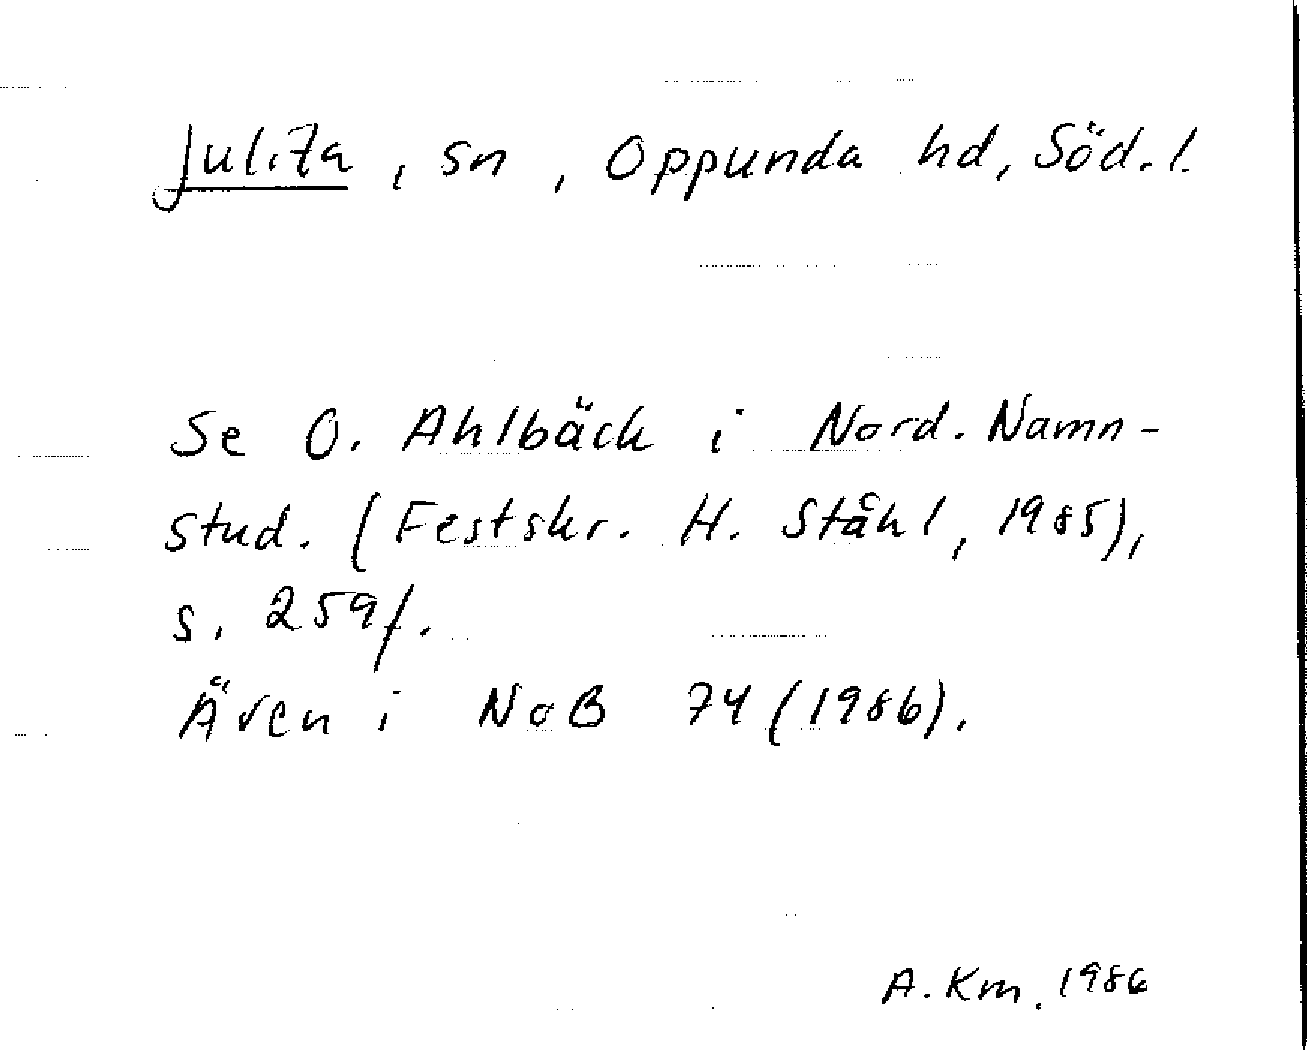 Julita, sn, Oppunda hd, Söd.l.
Se O. Ahlbäck i Nord. Namn-
stud. (Festskr. H. Ståhl, 1985),
s. 259f.
Även i NoB 74 (1986).
A. Km. 1986